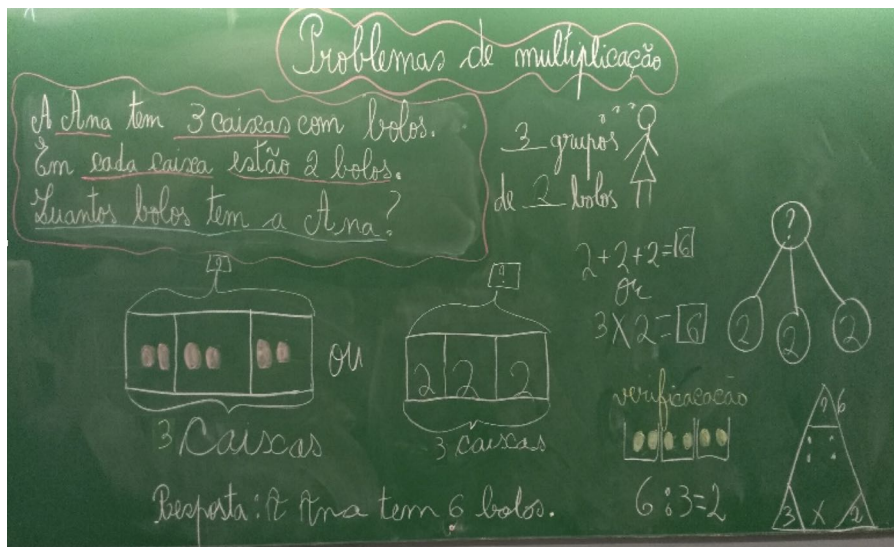 Problemas de multiplicação
A Ana tem 3 caixas com bolos.
Em cada caixa estão 2 bolos.
Quantos bolos tem a Ana?
3 grupos
de 2 bolos
? ? ?
?
3 Caixas
ou
?
2 2 2
3 caixas
2+2+2=6
ou
3 X 2=6
?
2 2 2
verificacação
6:3=2
? 6
: :
3 X 2
Resposta: A Ana tem 6 bolos.